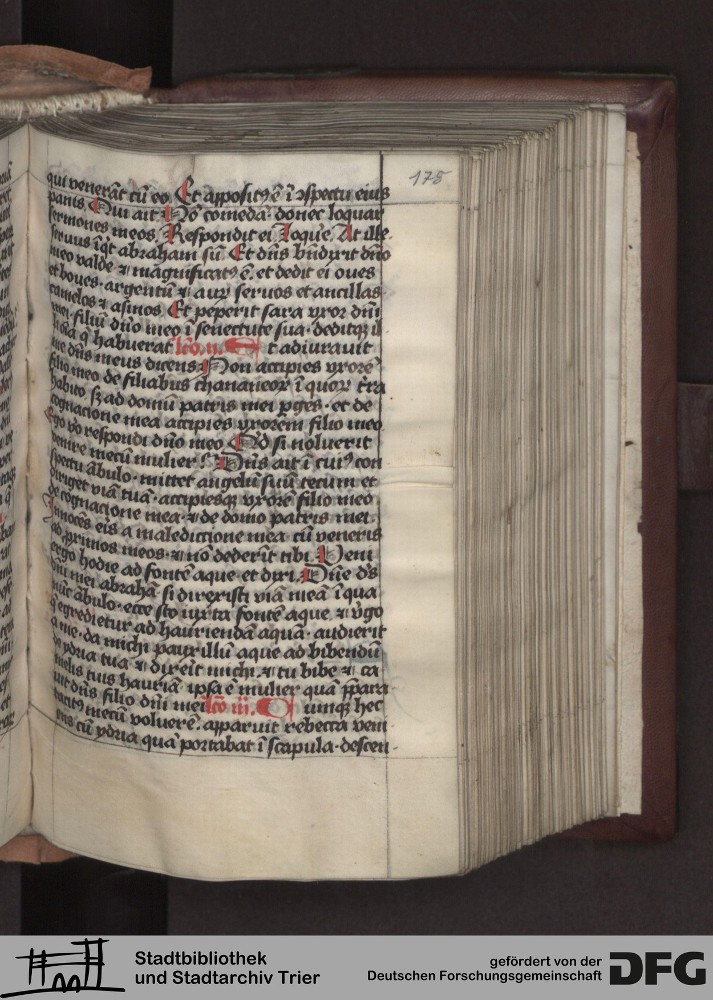 178
qui venerāt cū eo. Et appositꝰ ē ī ɔspectu eius
panis. Qui ait. Nō comedā donec loquar
sermones meos. Respondit ei. Loque. At ille.
seruus īqt abraham sū. Et dn̄s bn̄dixit dn̄o
meo valde ⁊ magnificatꝰ ē. et dedit ei oues
et boues. argentū ⁊ aurū seruos et ancillas.
camelos ⁊ asinos. Et peperit sara vxor dn̄i
mei. filiū dn̄o meo ī senectute sua. deditqꝫ il
li oīa q̄ habuerat lc̄o. ii. Et adiurauit
me dn̄s meus dicens. Non accipies vxorē
filio meo de filiabus chananeoꝝ ī quoꝝ t̄ra
habito. sꝫ ad domū patris mei ꝑges. et de
cognacione mea accipies vxorem filio meo
Ego vo respondi dn̄o meo. Qd si noluerit
venire mecū mulier? Dn̄s ait ī cuiꝰ con
spectu ābulo. mittet angelū suū tecum et
diriget viā tuā. accipiesqꝫ vxorē filio meo
de cognacione mea. ⁊ de domo patris mei.
Innocēs eis a malediccione mea. cū veneris
ad ꝓximos meos. ⁊ nō dederīt tibi. Veni
ergo hodie ad fontē aque et dixi. Dn̄e ds̄
dn̄i mei abrahā. si direxisti viā meā ī qua
nūc ābulo. ecce sto iuxta fontē aque. ⁊ v̄go
q̄ egredietur ad hauriendā aquā. audierit
a me. da michi pauxillū aque ad bibendū
de ydria tua ⁊ dixeīt michi. ⁊ tu bibe ⁊ ca
melis tuis hauriā. ipsa ē mulier quā p̄para
uit dn̄s filio dn̄i mei lc̄o iii. Cumqꝫ hec
tacitꝰ mecū voluerē. apparuit rebecca veni
ens cū ydria quā portabat ī scapula. descen
Stadtbibliothek
und Stadtarchiv Trier
gefördert von der
Deutschen Forschungsgemeinschaft
DFG